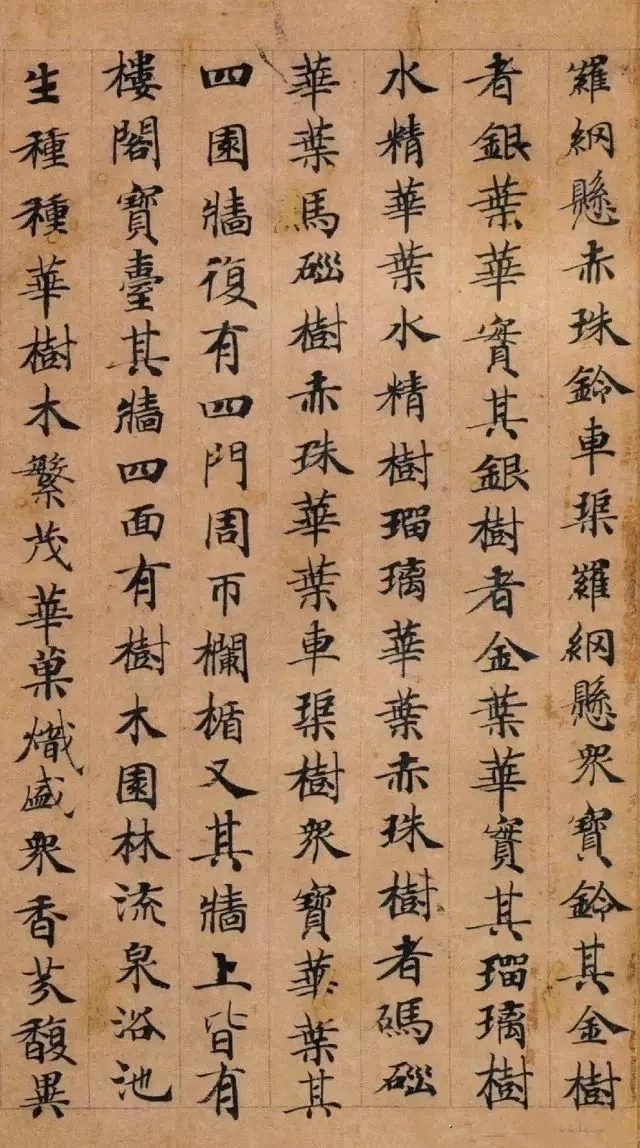 羅網懸赤珠鈴車渠羅網懸眾寶鈴其金樹
者銀葉華實其銀樹者金葉華實其瑠璃樹
水精華葉水精樹瑠璃華葉赤珠樹者碼碯
華葉馬碯樹赤珠華葉車渠樹眾寶華葉其
四園牆復有四門周帀欄楯又其牆上皆有
樓閣寶臺其牆四面有樹木園林流泉浴池
生種種華樹木繁茂華菓熾盛眾香芬馥異